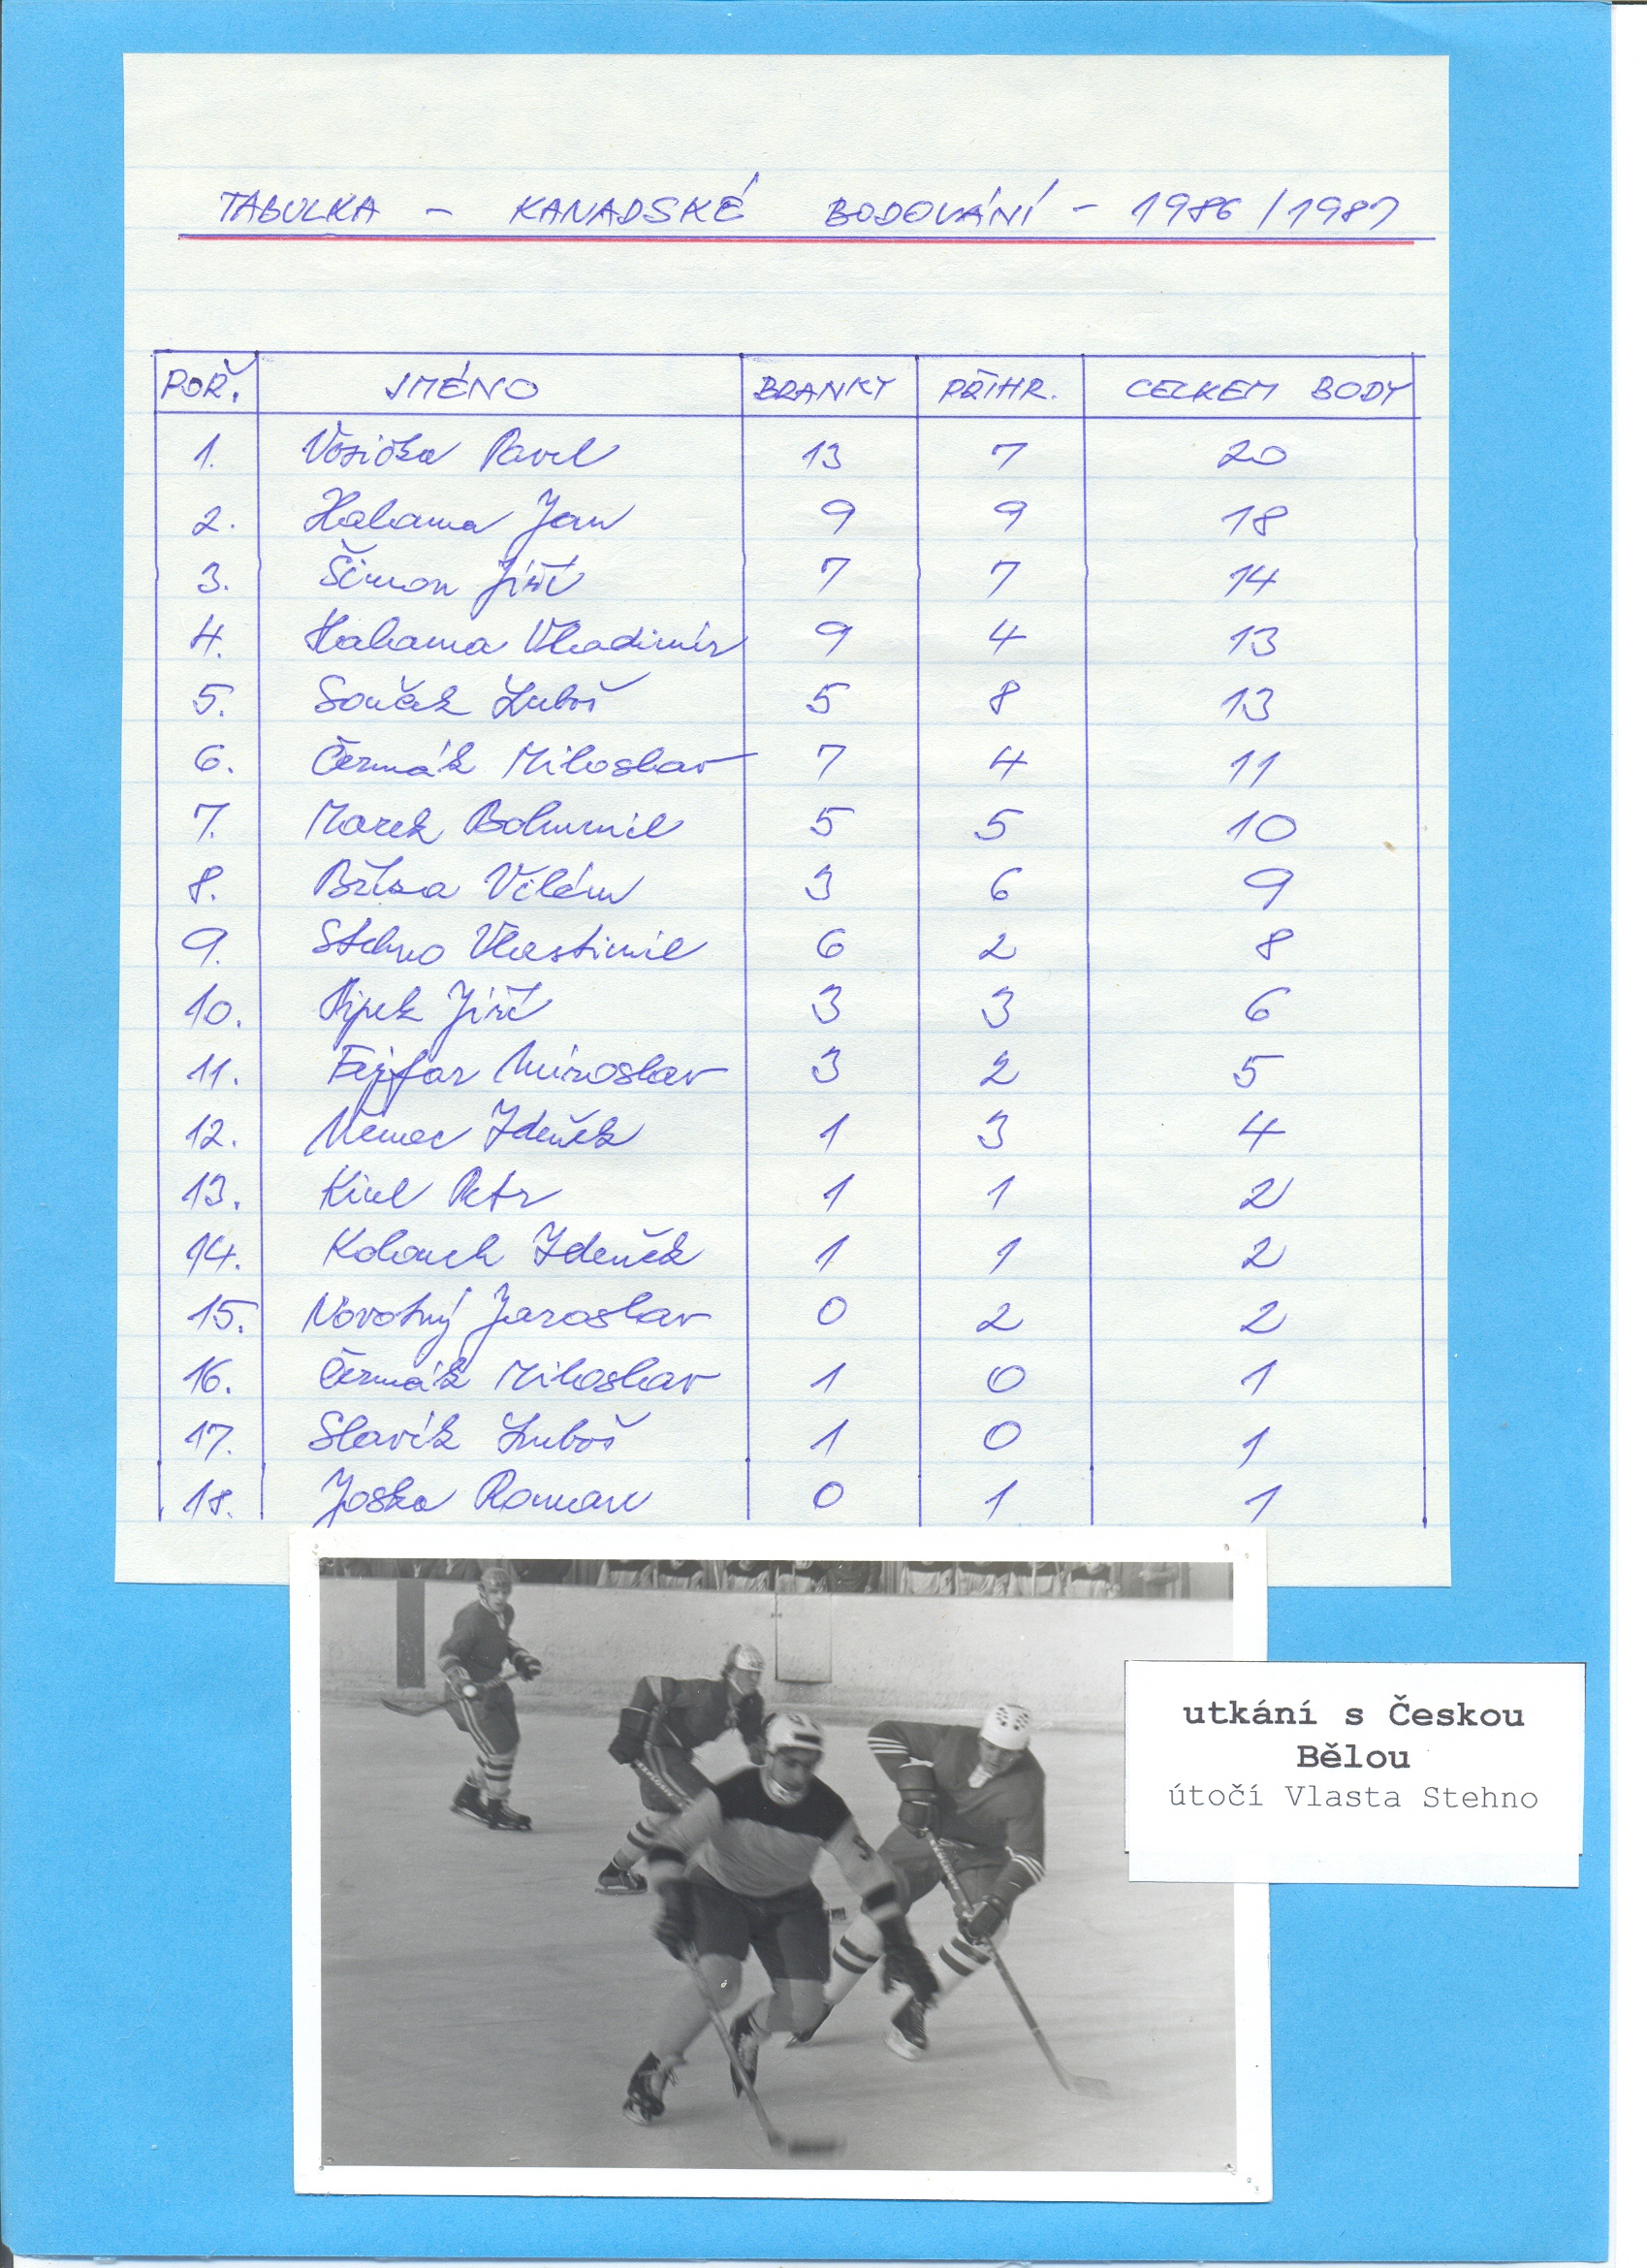 TABULKA - KANADSKÉ BODOVÁNÍ - 1986/1987
POŘ. JMÉNO BRANKY PŘIHR. CELKEM BODY
1. Vosička Pavel 13 7 20
2. Halama Jan 9 9 18
3. Šimon Jiří 7 7 14
4. Halama Vladimír 9 4 13
5. Souček Luboš 5 8 13
6. Čermák Miloslav 7 4 11
7. Marek Bohumil 5 5 10
8. Bříza Vilém 3 6 9
9. Stehno Vlastimil 6 2 8
10. Pipek Jiří 3 3 6
11. Fejfar Miroslav 3 2 5
12. Němec Zdeněk 1 3 4
13. Petr 1 1 2
14. Kolouch Zdeněk 1 1 2
15. Novotný Jaroslav 0 2 2
16. Čermák Miloslav 1 0 1
17. Slavík Luboš 1 0 1
18. Joska Roman 0 1 1
utkání s Českou
Bělou
útočí Vlasta Stehno